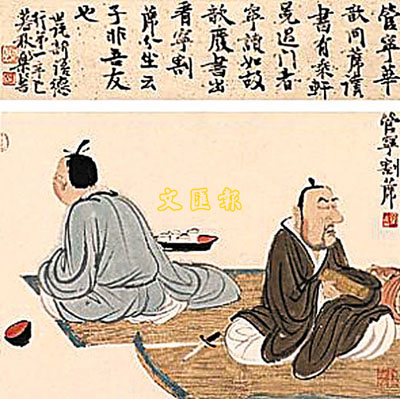 管寧華
歆同席讀
書有乘軒
冕過門者
寧讀如故
歆廢書出
看寧割
席分坐云
子非吾友
也
世說新語德
行第一辛巳
管寧割席
文匯報